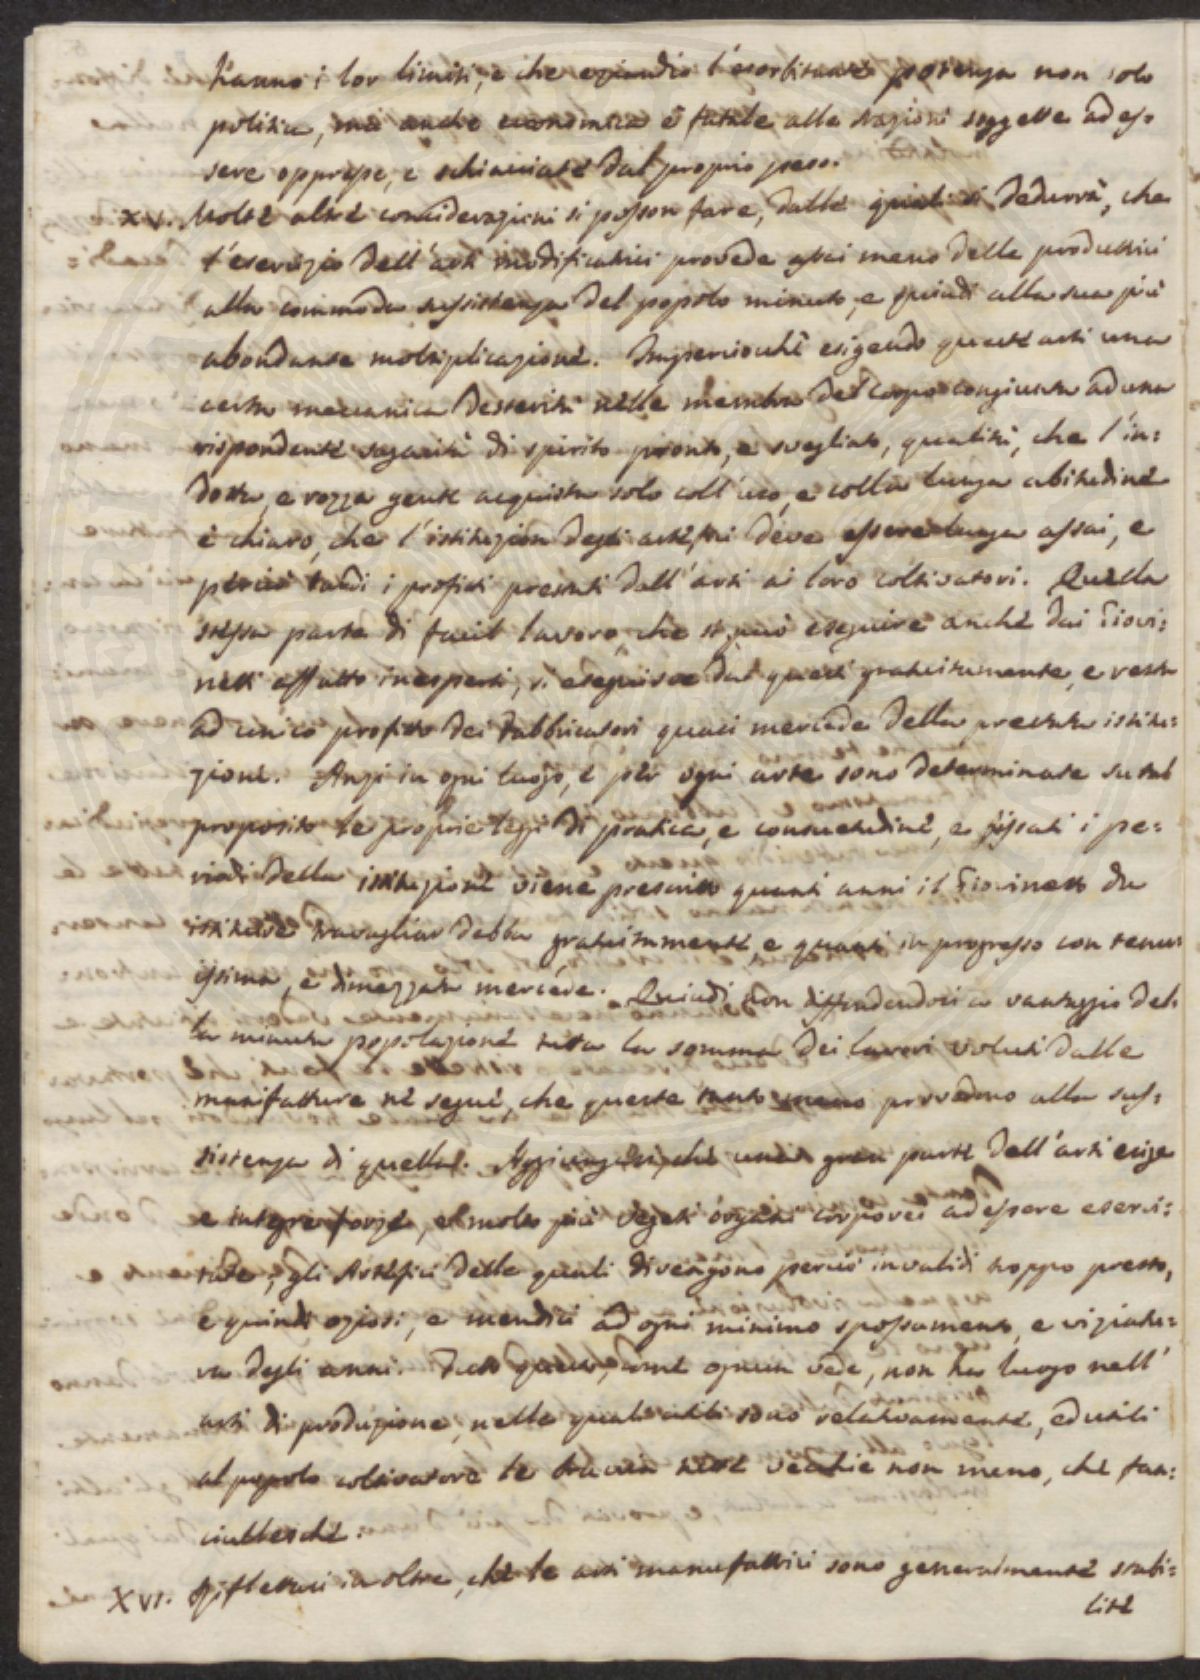 hanno i lor limiti, e che eziandio l'esorbitante potenza non solo
politica, ma anche economica è fatale alle nazioni soggette ad es:
sere oppresse, e schiacciate dal proprio peso.
XV. Molte altre considerazioni si posson fare, dalle quali si dedurrà, che
l'esercizio dell'arti modificatrici provede assai meno delle produttrici
alla commoda sussistenza del popolo minuto, e quindi alla sua più
abondante moltiplicazione. Imperciocchè esigendo queste arti una
certa meccanica desterità nelle membra del corpo congiunta ad una
rispondente sagacità di spirito pronto, e svegliato, qualità, che l'in:
dotta, e rozza gente acquista solo coll'uso, e colla lunga abitudine
è chiaro, che l'istituzion degli artefici deve essere lunga assai, e
perciò tardi i profitti prestati dall'arti ai loro coltivatori. Quella
stessa parte di facil lavoro, che si può eseguire anche dai Giovi:
netti affatto inesperti, si eseguisce da questi gratuitamente, e resta
ad unico profitto dei Fabbricatori quasi mercede della prestata istitu:
zione. Anzi in ogni luogo, e per ogni arte sono determinate su tal
proposito le proprie leggi di pratica, e consuetudine, e fissati i pe:
riodi della istituzione viene prescritto quanti anni il Giovinetto da
istituirsi travagliar debba gratuitamente, e quanti in progresso con tenu:
issima, e dimezzata mercede. Quindi non diffondendosi a vantaggio del:
la minuta popolazione tutta la somma dei lavori voluti dalle
manifatture nè segue, che queste tanto meno provedono alla sus:
sistenza di quella. Aggiungasi, che una gran parte dell'arti esige
e integre forze, e molto più vegeti organi corporei ad essere eserci:
tate, gli Artefici delle quali divengono perciò invalidi troppo presto,
e quindi oziosi, e mendici ad ogni minimo spossamento, e viziatu:
ra degli anni. Tutto questo, come ognun vede, non ha luogo nell'
arti di produzione, nelle quali utili sono relativamente, ed utili
al popolo coltivatore le braccia vecchie non meno, che fan:
ciullesche.
XVI. Riflettasi in oltre, che le arti manufattrici sono generalmente stabi:
lite